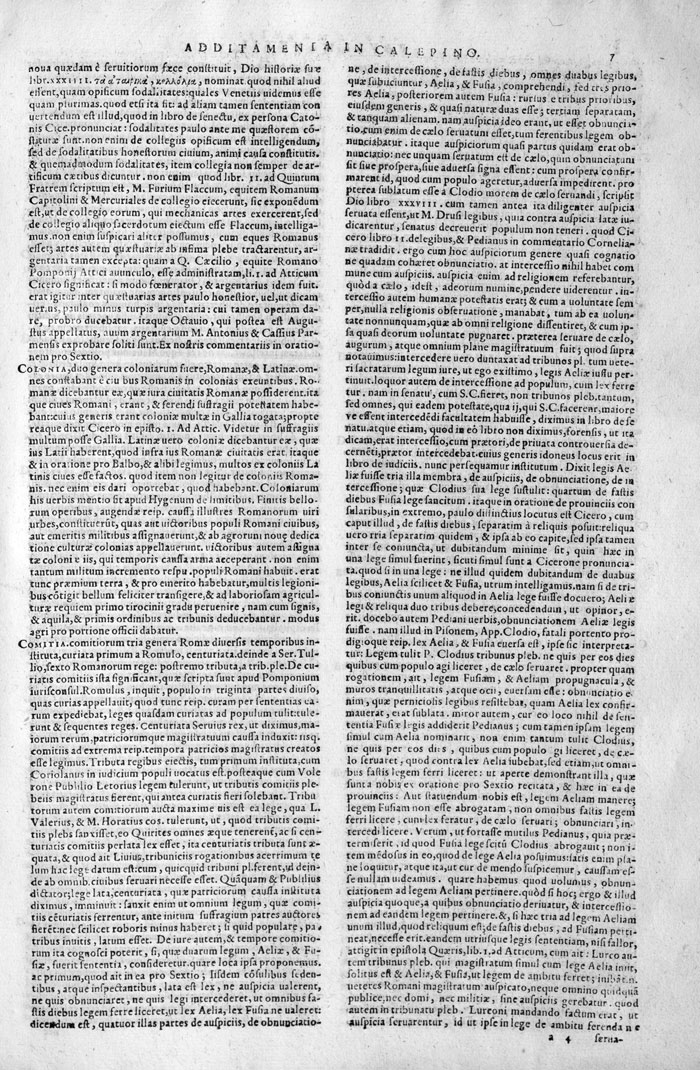 ADDITAMENTA IN CALEPINO.
7
noua quædam è seruitiorum fæce constituit, Dio historiæ suæ
libr. xxxiiii. nominat quod nihil aliud
essent, quam opificum sodalitates: quales Venetiis uidemus esse
quam plurimas. quod etsi ita sit: ad aliam tamen sententiam con
uertendum est illud, quod in libro de senectu, ex persona Cato-
nis Cice. pronunciat: sodalitates paulo ante me quæstorem cō-
stitutæ sunt. non enim de collegiis opificum est intelligendum,
sed de sodalitatibus honestorum ciuium, animi causa constitutis.
& quemadmodum sodalitates, item collegia non semper de ar-
tificum cœtibus dicuntur. non enim quod libr. 11. ad Quintum
Fratrem scriptum est, M. Furium Flaccum, equitem Romanum
Capitolini & Mercuriales de collegio eiecerunt, sic exponēdum
est, ut de collegio eorum, qui mechanicas artes exercerent, sed
de collegio aliquo sacerdotum eiectum esse Flaccum, intelliga-
mus. non enim suspicari aliter possumus, cum eques Romanus
esset; artes autem quæstuariæ ab infima plebe tractarentur, ar-
gentaria tamen excepta: quam a Q. Cæcilio, equite Romano
Pomponij Attici auunculo, esse administratam, li. 1. ad Atticum
Cicero significat: si modo fœnerator, & argentarius idem fuit.
erat igitur inter quæstuarias artes paulo honestior, uel, ut dicam
uerius, paulo minus turpis argentaria: cui tamen operam da-
re, probro ducebatur. itaque Octauio, qui postea est Augu-
stus appellatus, auum argentarium M. Antonius & Cassius Par-
mensis exprobare soliti sunt. Ex nostris commentariis in oratio-
nem pro Sextio.
COLONIA, duo genera coloniarum fuere, Romanæ, & Latinæ. om-
nes constabant è ciuibus Romanis in colonias exeuntibus. Ro-
manæ dicebantur eæ, quæ iura ciuitatis Romanæ possiderent. ita
que ciues Romani, erant, & ferendi suffragii potestatem habe-
bant. cuius generis erant coloniæ multæ in Gallia togata; propte
reaque dixit Cicero in episto. 1. ad Attic. Videtur in suffragiis
multum posse Gallia. Latinæ uero coloniæ dicebantur eæ, quæ
ius Latii haberent, quod infra ius Romanæ ciuitatis erat. itaque
& in oratione pro Balbo, & alibi legimus, multos ex coloniis La
tinis ciues esse factos. quod item non legitur de coloniis Roma-
nis. nec enim eis dari oportebat, quod habebant. Coloniarum
his uerbis mentio fit apud Hygenum de limitibus. Finitis bello-
rum operibus, augendæ reip. causa illustres Romanorum uiri
urbes, constituerunt, quas aut uictoribus populi Romani ciuibus,
aut emeritis militibus assignauerunt, & ab agrorum noua dedica
tione culturæ colonias appellauerunt. uictoribus autem assigna
tæ coloniæ iis, qui temporis causa arma acceperant. non enim
tantum militum incremento respu. populi Romani habuit. erat
tunc præmium terra, & pro emerito habebatur, multis legioni-
bus cōtigit bellum feliciter transigere, & ad laboriosam agricul-
turæ requiem primo tirocinii gradu peruenire, nam cum signis,
& aquila, & primis ordinibus ac tribunis deducebantur. modus
agri pro portione officii dabatur.
COMITIA. comitiorum tria genera Romæ diuersis temporibus in-
stituta, curiata primum a Romulo, centuriata. deinde a Ser. Tul-
lio, sexto Romanorum rege: postremo tributa, a trib. ple. De cu-
riatis comitiis ista significant, quæ scripta sunt apud Pomponium
iurisconsul. Romulus, inquit, populo in triginta partes diuiso,
quas curias appellauit, quod tunc reip. curam per sententias ea-
rum expediebat, leges quasdam curiatas ad populum tulit: tule-
runt & sequentes reges. Centuriata Seruius rex, ut diximus, ma-
iorum rerum, patriciorumque magistratuum caussa induxit: iisq.
comitiis ad extrema reip. tempora patricios magistratus creatos
esse legimus. Tributa regibus eiectis, tum primum instituta, cum
Coriolanus in iudicium populi uocatus est. posteaque cum Vole
rone Publilio Letorius legem tulerunt, ut tributis comitiis ple-
beii magistratus fierent, qui antea curiatis fieri solebant. Tribu
torum autem comitiorum aucta maxime uis est ea lege, qua L.
Valerius, & M. Horatius cos. tulerunt, ut, quod tributis comi-
tiis plebs sanxisset, eo Quirites omnes æque tenerent, ac si cen-
turiatis comitiis perlata lex esset, ita centuriatis tributa sunt æ-
quata, & quod ait Liuius, tribuniciis rogationibus acerrimum te
lum hac lege datum est: cum, quicquid tribuni pl. ferent, ul dein-
de ab omnib. ciuibus seruari necesse esset. Quāquam & Publilius
dictator; lege lata, centuriata, quæ patriciorum caussa instituta
diximus, imminuit: sanxit enim ut omnium legum, quæ comi-
tiis cēturiatis serrentur, ante initum suffragium patres auctores
fierēt: nec scilicet roboris minus haberet; si quid populare, pa-
tribus inuitis, latum esset. De iure autem, & tempore comitio-
rum ita cognosci poterit, si, quæ duarum legum, Aeliæ, & Fu-
siæ, fuerit sententia, consideretur. quare loca ipsa proponemus.
ac primum, quod ait in ea pro Sextio; Iisdem cōsulibus seden-
tibus, atque inspectantibus, lata est lex, ne auspicia ualerent,
ne quis obnunciaret, ne quis legi intercederet, ut omnibus fa-
stis diebus legem ferre liceret, ut lex Aelia, lex Fusia ne ualeret:
dicendum est, quatuor illas partes de auspiciis, de obnunciatio-
ne, de intercessione, de fastis diebus, omnes duabus legibus,
quæ subiiciuntur, Aelia, & Fusia, comprehendi, sed tres prio-
res Aelia, posteriorem autem Fusia: rursus e tribus prioribus,
eiusdem generis, & quasi naturæ duas esse; tertiam separatam,
& tanquam alienam. nam auspicia ideo erant, ut esset obnuncia-
tio. cum enim de cælo seruatum esset, tum ferentibus legem ob-
nunciabatur. itaque auspiciorum quasi pars quidam erat ob-
nunciatio: nec unquam seruatum est de cælo, quin obnunciatum
sit siue prospera, siue aduersa signa essent: cum prospera confir-
marent id, quod cum populo ageretur, aduersa impedirent. pro
pterea sublatum esse a Clodio morem de cælo seruandi, scripsit
Dio libro xxxviii. cum tamen antea ita diligenter auspicia
seruata essent, ut M. Drusi legibus, quia contra auspicia latæ iu-
dicarentur, senatus decreuerit populum non teneri. quod Ci-
cero libro 11. delegibus, & Pedianus in commentario Cornelia-
næ tradidit. ergo cum hoc auspiciorum genere quasi cognatio
ne quadam cohæret obnunciatio. at intercessio nihil habet com
mune cum auspiciis. auspicia euim ad religionem referebantur,
quòd a cælo, idest, adeorum numine, pendere uiderentur. in-
tercessio autem humanæ potestatis erat; & cum a uoluntate sem
per, nulla religionis obseruatione, manabat, tum ab ea uolun-
tate nonnunquam, quæ ab omni religione dissentiret, & cum ip-
sa quasi deorum uoluntate pugnaret. præterea seruare de cælo,
augurum, atque omnium plane magistratuum fuit; quod supra
notauimus: intercedere uero duntaxat ad tribunos pl. tum uete-
ri sacratarum legum iure, ut ego existimo, legis Aeliæ iussu per-
tinuit. loquor autem de intercessione ad populum, cum lex ferre
tur. nam in senatu, cum S.C. fieret, non tribunos pleb. tantum,
sed omnes, qui eadem potestate, qua ij, qui S.C. facerent, maiore
ve essent intercedēdi facultatem habuisse, diximus in libro de se
natu. atque etiam, quod in eō libro non diximus, forensis, ut ita
dicam, erat intercessio, cum prætori, de priuata controuersia de-
cernēti, prætor intercedebat. cuius generis idoneus locus erit in
libro de iudiciis. nunc persequamur institutum. Dixit legis Ae-
liæ fuisse tria illa membra, de auspiciis, de obnunciatione, de in
tercessione; quæ Clodius sua lege sustulit: quartum de fastis
diebus Fusia lege sancitum. itaque in oratione de prouinciis con
sularibus, in extremo, paulo distinctius locutus est Cicero, cum
caput illud, de fastis diebus, separatim à reliquis posuit: reliqua
uero tria separatim quidem, & ipsa ab eo capite, sed ipsa tamen
inter se coniuncta, ut dubitandum minime sit, quin hæc in
una lege simul fuerint, sicuti simul sunt a Cicerone pronuncia-
ta. quod si in una lege: ne illud quidem dubitandum de duabus
legibus, Aelia scilicet & Fusia, utrum intelligamus. nam si de tri-
bus coniunctis unum aliquod in Aelia lege fuisse docuero; Aeliæ
legi & reliqua duo tribus debere, concedendum, ut opinor, e-
rit. docebo autem Pediani uerbis, obnunciationem Aeliæ legis
fuisse. nam illud in Pisonem, App. Clodio, fatali portento pro
digioque reip. lex Aelia, & Fusia euersa est, ipse sic interpreta-
tur: Legem tulit P. Clodius tribunus pleb. ne quis per eos dies
quibus cum populo agi liceret, de cælo seruaret. propter quam
rogationem, ait, legem Fusiam, & Aeliam propugnacula, &
muros tranquillitatis, atque ocii, euersam esse: obnunciatio e
nim, qua perniciosis legibus resistebat, quam Aelia lex confir-
mauerat, erat sublata. miror autem, cur eo loco nihil de sen-
tentia Fusiæ legis addiderit Pedianus; cum tamen ipsam legem
simul cum Aelia nominarit, non enim tantum tulit Clodius,
ne quis per eos dies, quibus cum populo agi liceret, de cæ-
lo seruaret, quod contra lex Aelia iubebat, sed etiam, ut omni-
bus fastis legem ferri liceret: ut aperte demonstrant illa, quæ
sunta nobis ex oratione pro Sextio recitata, & hæc in ea de
prouinciis: Aut statuendum nobis est, legem Aeliam manere;
legem Fusiam non esse abrogatam, non omnibus fastis legem
ferri licere, cum lex feratur, de cælo seruari; obnunciari, in-
tercedi licere. Verum, ut fortasse mutilus Pedianus, quia præ-
term serit, id quod Fusia lege scitū Clodius abrogauit; non i-
tem mēdosus in eo, quod de lege Aelia posuimus: satis enim pla-
ne loquitur, atque ita, ut cur de mendo suspicemur, caussam es-
se nullam iudeamus. quare habemus quod uolumus, obnun-
ciationem ad legem Aeliam pertinere. quòd si hoc; ergo & illud
auspicia quoque, a quibus obnunciatio deriuatur, & intercessio-
nem ad eandem legem pertinere. &, si hæc tria ad legem Aeliam
unum illud, quod reliquum est; de fastis diebus, ad Fusiam perti-
neat, necesse erit. eandem utriusque legis sententiam, nisi fallor,
attigit in epistola Quæris, lib. 1. ad Atticum, cum ait: Lurco au-
tem tribunus pleb. qui magistratum simul cum lege Aelia iniit,
solutus est & Aelia, & Fusia, ut legem de ambitu ferret; inibāt. n.
ueteres Romani magistratum auspicato, neque omnino quidquā
publice, nec domi, nec militiæ, sine auspiciis gerebatur. quod
autem in tribunatu pleb. Lurconi mandando factum erat, ut
auspicia seruarentur, id ut ipse in lege de ambitu ferenda ne
a 4 serua-